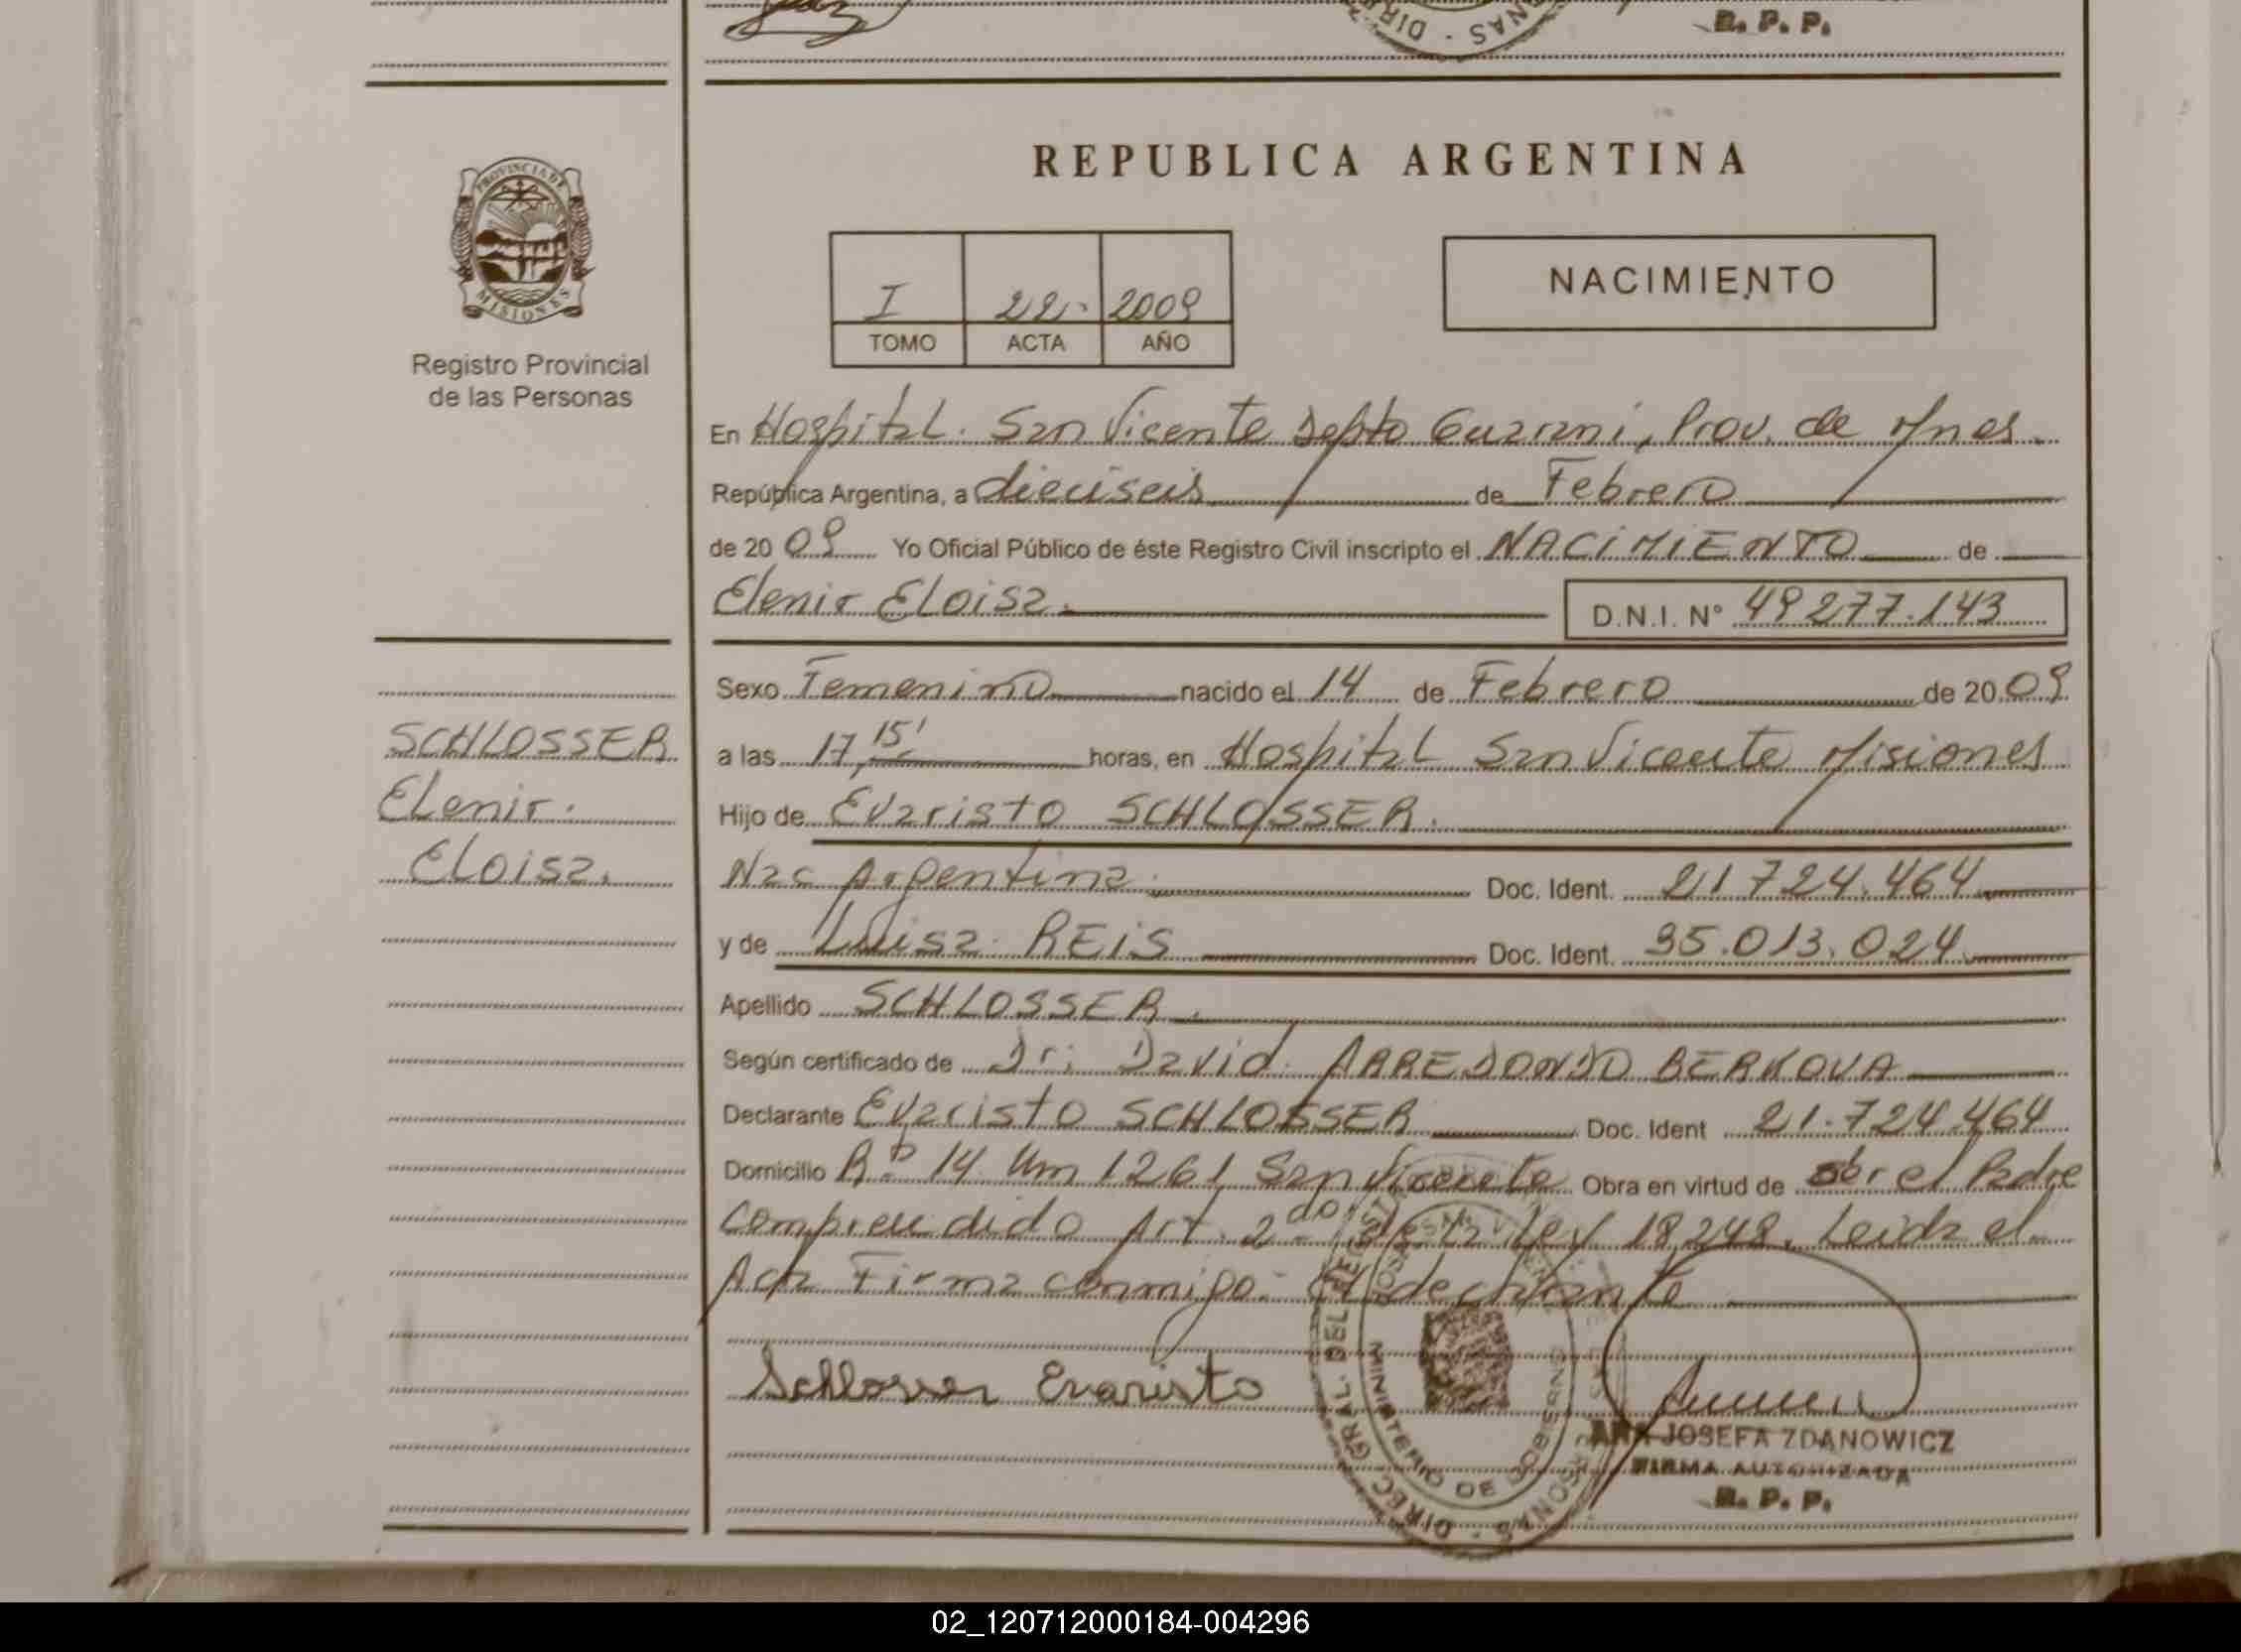 DIR - NAS
R. P. P.
PROVINCIA DE
MISIONES
Registro Provincial
de las Personas
REPUBLICA ARGENTINA
I 22. 2009
TOMO ACTA AÑO
NACIMIENTO
En Hospital. San Vicente Depto Guarani, Prov. de Mnes.
República Argentina, a dieciseis de Febrero
de 2009 Yo Oficial Público de éste Registro Civil inscripto el NACIMIENTO de
Elenir Eloisa. D.N.I. Nº 49277.143
Sexo Femenino nacido el 14 de Febrero de 2009
SCHLOSSER
Elenir.
Eloisa.
a las 17,15' horas, en Hospital San Vicente Misiones
Hijo de Evaristo SCHLOSSER.
Nac Argentina. Doc. Ident. 21724.464
y de Luisa. REIS Doc. Ident. 35.013.024
Apellido SCHLOSSER.
Según certificado de Dr. David. ARREDONDO BERKOVA
Declarante Evaristo SCHLOSSER Doc. Ident 21.724.464
Domicilio 14. Km 1261 San Vicente Obra en virtud de ser el Padre
Comprendido Art. 2do. de la Ley 18.248. Leida el
Acta Firma conmigo. el declarante
Schlosser Evaristo
DIREC. GRAL. DEL PERSONAS -
MINISTERIO DE GOBIERNO
ANA JOSEFA ZDANOWICZ
FIRMA AUTORIZADA
R. P. P.
02_120712000184-004296